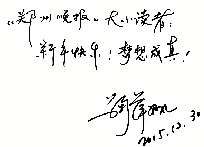 《郑州晚报》大小读者：
新年快乐！梦想成真！
2015.12.30